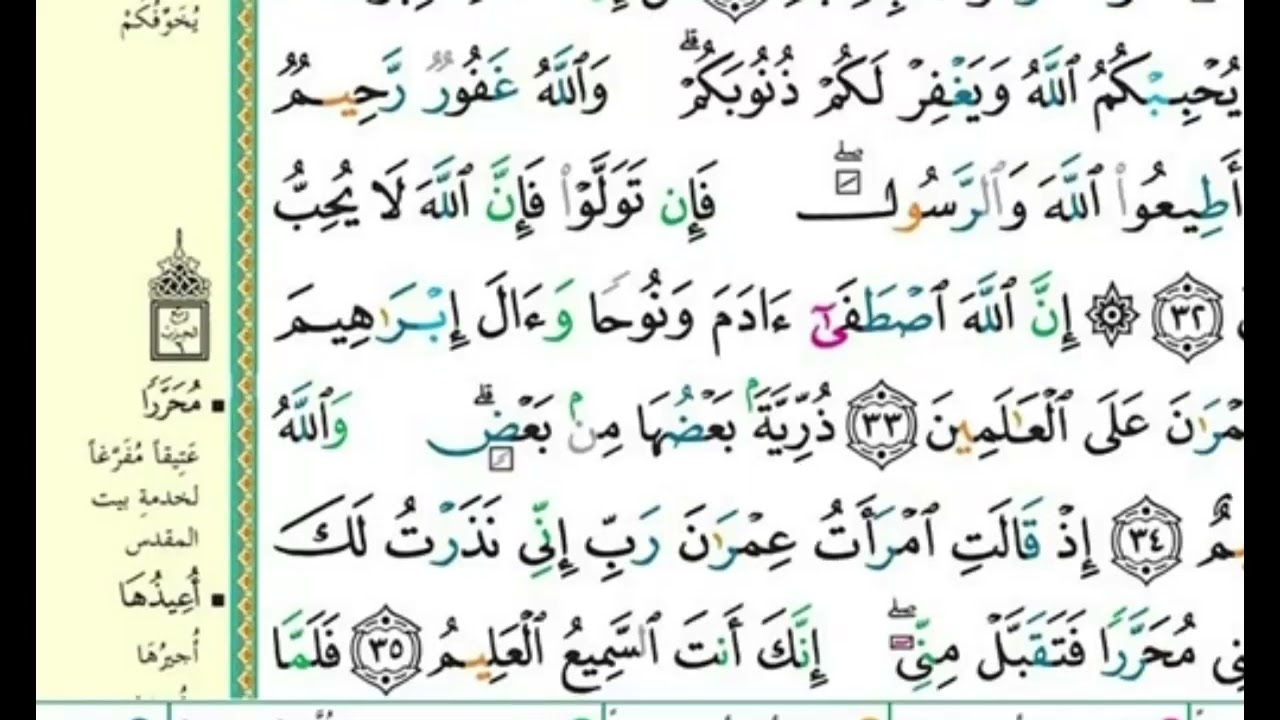 يُحْبِبْكُمُ ٱللَّهُ وَيَغْفِرْ لَكُمْ ذُنُوبَكُمْ ۗ وَٱللَّهُ غَفُورٌ رَّحِيمٌ
أَطِيعُوا۟ ٱللَّهَ وَٱلرَّسُولَ ۖ فَإِن تَوَلَّوْا۟ فَإِنَّ ٱللَّهَ لَا يُحِبُّ
٣٢ ۞ إِنَّ ٱللَّهَ ٱصْطَفَىٰٓ ءَادَمَ وَنُوحًا وَءَالَ إِبْرَٰهِيمَ
عَلَى ٱلْعَـٰلَمِينَ ٣٣ ذُرِّيَّةًۢ بَعْضُهَا مِنۢ بَعْضٍ ۗ وَٱللَّهُ
٣٤ إِذْ قَالَتِ ٱمْرَأَتُ عِمْرَٰنَ رَبِّ إِنِّى نَذَرْتُ لَكَ
مُحَرَّرًا فَتَقَبَّلْ مِنِّىٓ ۖ إِنَّكَ أَنتَ ٱلسَّمِيعُ ٱلْعَلِيمُ ٣٥ فَلَمَّا
يُخَوِّفُكُمْ
ربع
الحزب
٦
مُحَرَّرًا
عَتِيقاً مُفَرَّغاً
لخدمةِ بيت
المقدس
أُعِيذُهَا
أُجيرُهَا